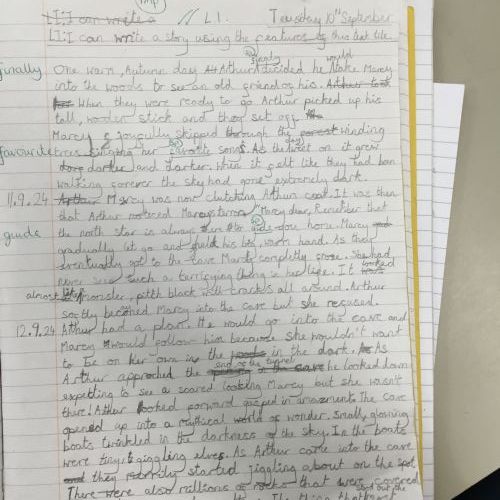 Imp
L.I: I can write a // L.I. Teusday 10th September
L.I: I can write a story using the features of this text title.
finally One warm, Autumn day Arthur finaly decided he would take Marcy
into the woods to see an old friend of his. Arthur took
his When they were ready to go Arthur picked up his
tall, wooden stick and they set off
Marcy joyfully skipped through the forest winding
favourite trees singing her favoute songs. As the day went on it grew
darker and darker. When it felt like they had ben
walking forever the sky had gone extremely dark.
11.9.24 Arthur Marcy was now clutching Arthur coat. It was then
that Arthur noticed Marcys terror. Marcy dear, Remember that
guide the north star is always there to you home. Marcy
gradually let go and held his big, warm hand. As they
eventually got to the cave Marcy completly froze. She had
never seen such a terrifying thing in her life. It looked
almost like a monster, pitch black with cracks all around. Arthur
softly beconed Marcy into the cave but she refused.
12.9.24 Arthur had a plan. He would go into the cave and
Marcy would follow him because she wouldn't want
to be on her own in the woods in the dark. As
Arthur approched the end of the tunnel in the cave he looked down
expecting to see a scared looking Marcy but she wasn't
there! Arthur looked forward gasped in amazement. The cave
opened up into a mythical world of wonder. Small, glowing
boats twinkled in the darkness of the sky. In the boats
were tiny giggling elves. As Arthur came into the cave
and they started jiggling about on the spot
There were also millions of rocks that were covered